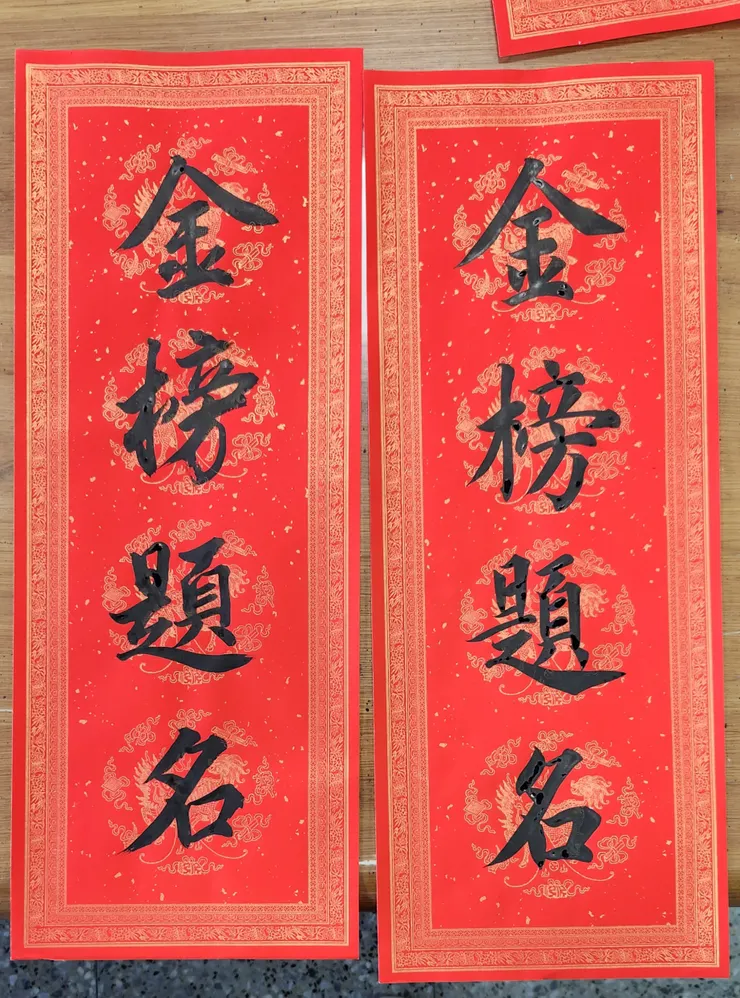 金榜題名
金榜題名